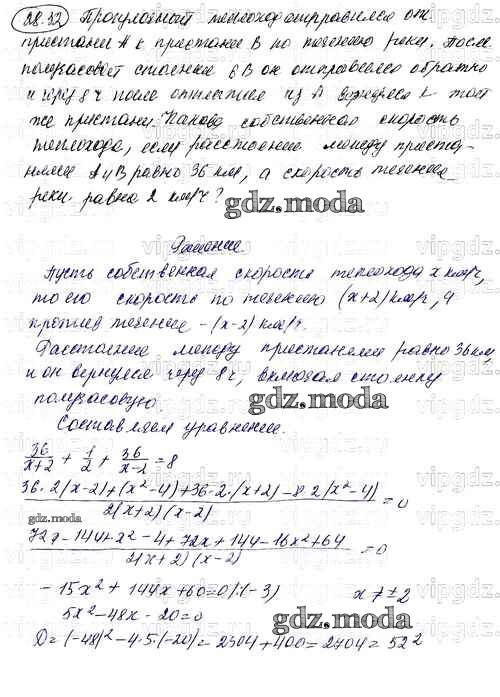 28.32 Прогулочный теплоход отправился от
пристани А к пристани В по течению реки. После
получасовой стоянки в В он отправился обратно
и через 8 ч после отплытия из А вернулся к той
же пристани. Какова собственная скорость
теплохода, если расстояние между приста-
нями А и В равно 36 км, а скорость течения
реки равна 2 км/ч?
gdz.moda
Решение
Пусть собственная скорость теплохода x км/ч,
то его скорость по течению (x+2) км/ч, а
против течения - (x-2) км/ч.
Расстояние между пристанями равно 36 км
и он вернулся через 8 ч, включая стоянку
получасовую.
gdz.moda
Составляем уравнение.
36/(x+2) + 1/2 + 36/(x-2) = 8
(36·2(x-2)+(x²-4)+36·2·(x+2)-8·2(x²-4))/(2(x+2)(x-2)) = 0
gdz.moda
(72x-144+x²-4+72x+144-16x²+64)/(2(x+2)(x-2)) = 0
-15x²+144x+60=0 |:(-3) x≠±2
5x²-48x-20=0
gdz.moda
D=(-48)²-4·5·(-20)=2304+400=2704=52²